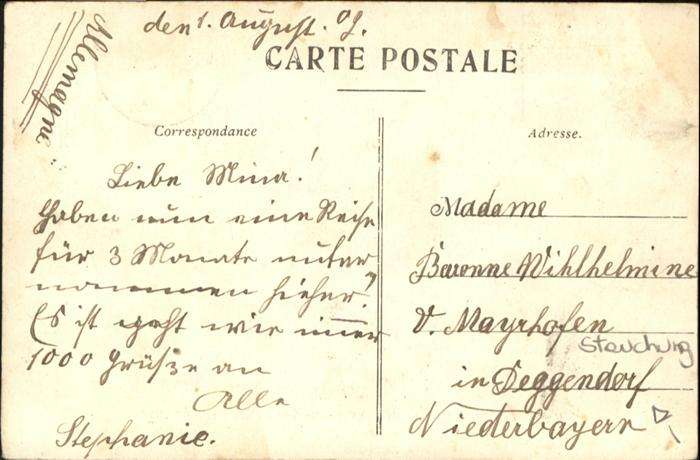 den 1. August. 09.
CARTE POSTALE
Allemagne
Correspondance
Liebe Mina!
Haben nun eine Reise
für 3 Monate unter
nommen hieher!
Es ist geht wie immer
1000 Grüße an
Alle
Stephanie.
Adresse.
Madame
Baronne Wihlhelmine
V. Mayrhofen
in Deggendorf
Niederbayern